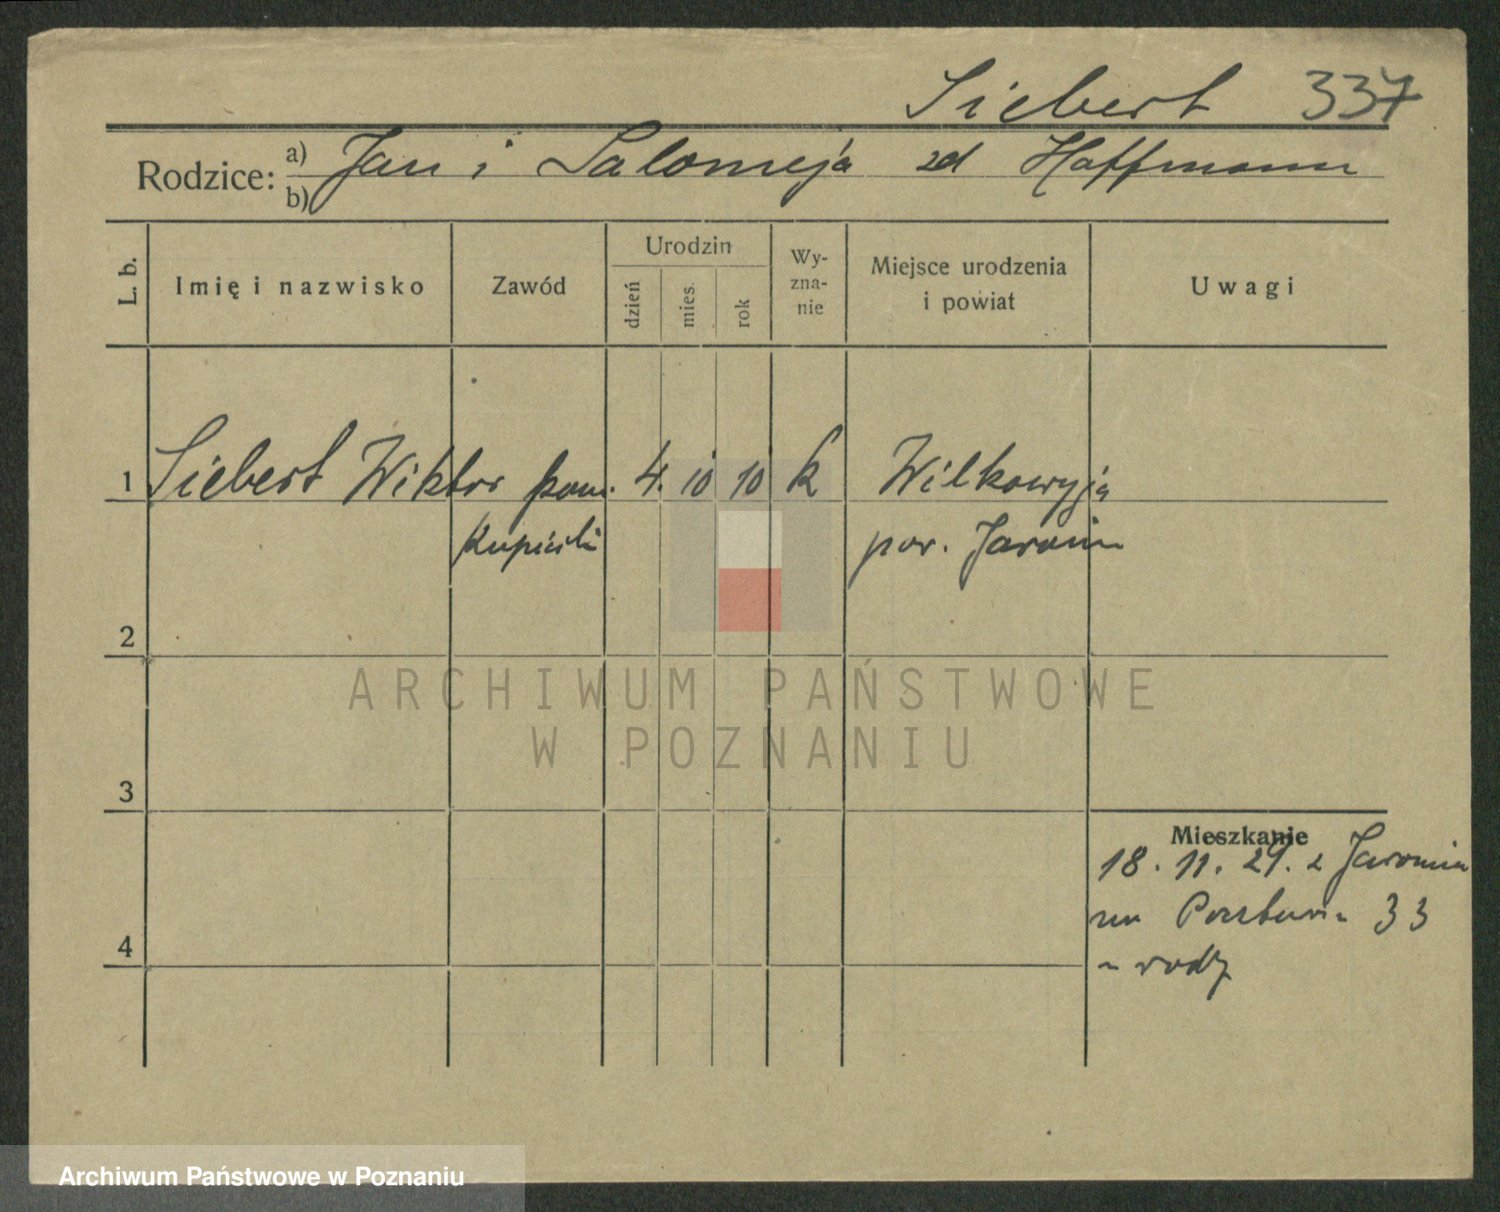 Siebert 337
Rodzice: a) Jan i Salomeja zd Hoffmann
b)
L. b. Imię i nazwisko Zawód Urodzin dzień mies. rok Wy-zna-nie Miejsce urodzenia i powiat Uwagi
1 Siebert Wiktor pom. 4. 10 10 k Wilkowyja
kupiecki pow. Jarocin
2
ARCHIWUM PAŃSTWOWE
W POZNANIU
3
Mieszkanie
18. 11. 29. z Jarocina
33
4
rodz
Archiwum Państwowe w Poznaniu